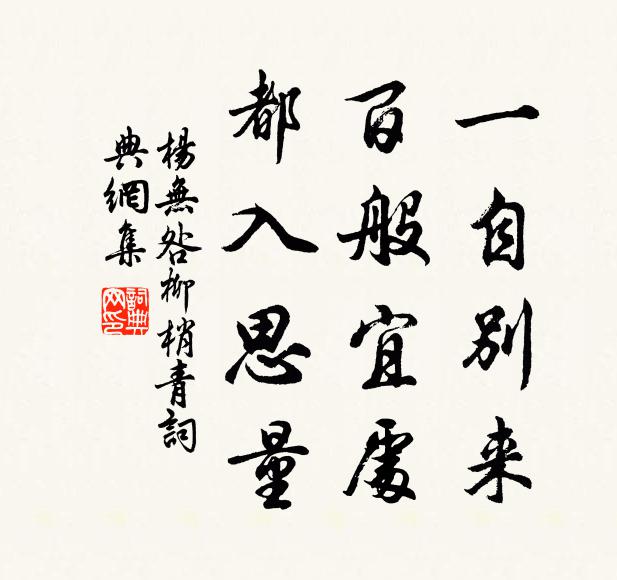 一自别来
百般宜處
都入思量
楊無咎柳梢青詞
典網集
詞典網印